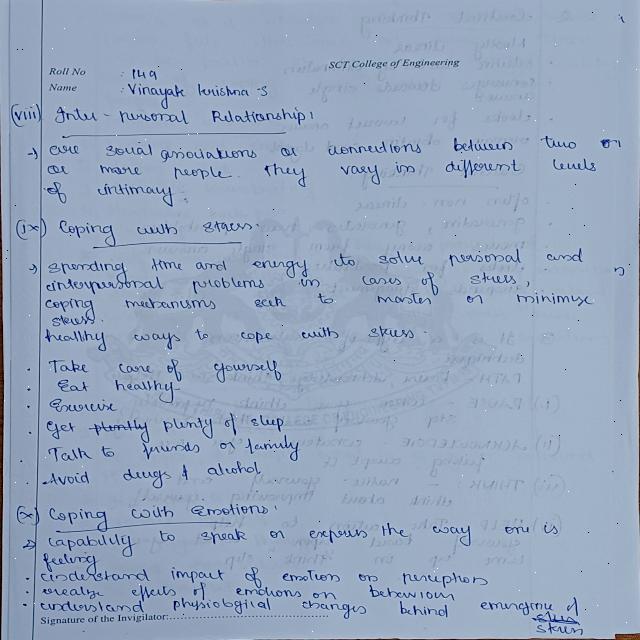 SCT College of Engineering
Roll No : 149
Name : Vinayak krishna S
(viii) Inter-Personal Relationship:
→ are social associations or connections between two or
or more people. They vary in different levels
of intimacy.
(ix) Coping with stress.
→ spending time and energy to solve personal and
interpersonal problems in cases of stress,
coping mechanisms seek to master or minimize
stress.
healthy ways to cope with stress.
. Take care of yourself
. Eat healthy
. Exercise
. Get plently plenty of sleep
. Talk to friends or family
. Avoid drugs & alcohol
(x) Coping with Emotions:
→ capability to speak or express the way one is
feeling
. understand impact of emotion on perception
. realize effects of emotions on behaviour
. understand physiological changes behind emergence of
stress
Signature of the Invigilator: